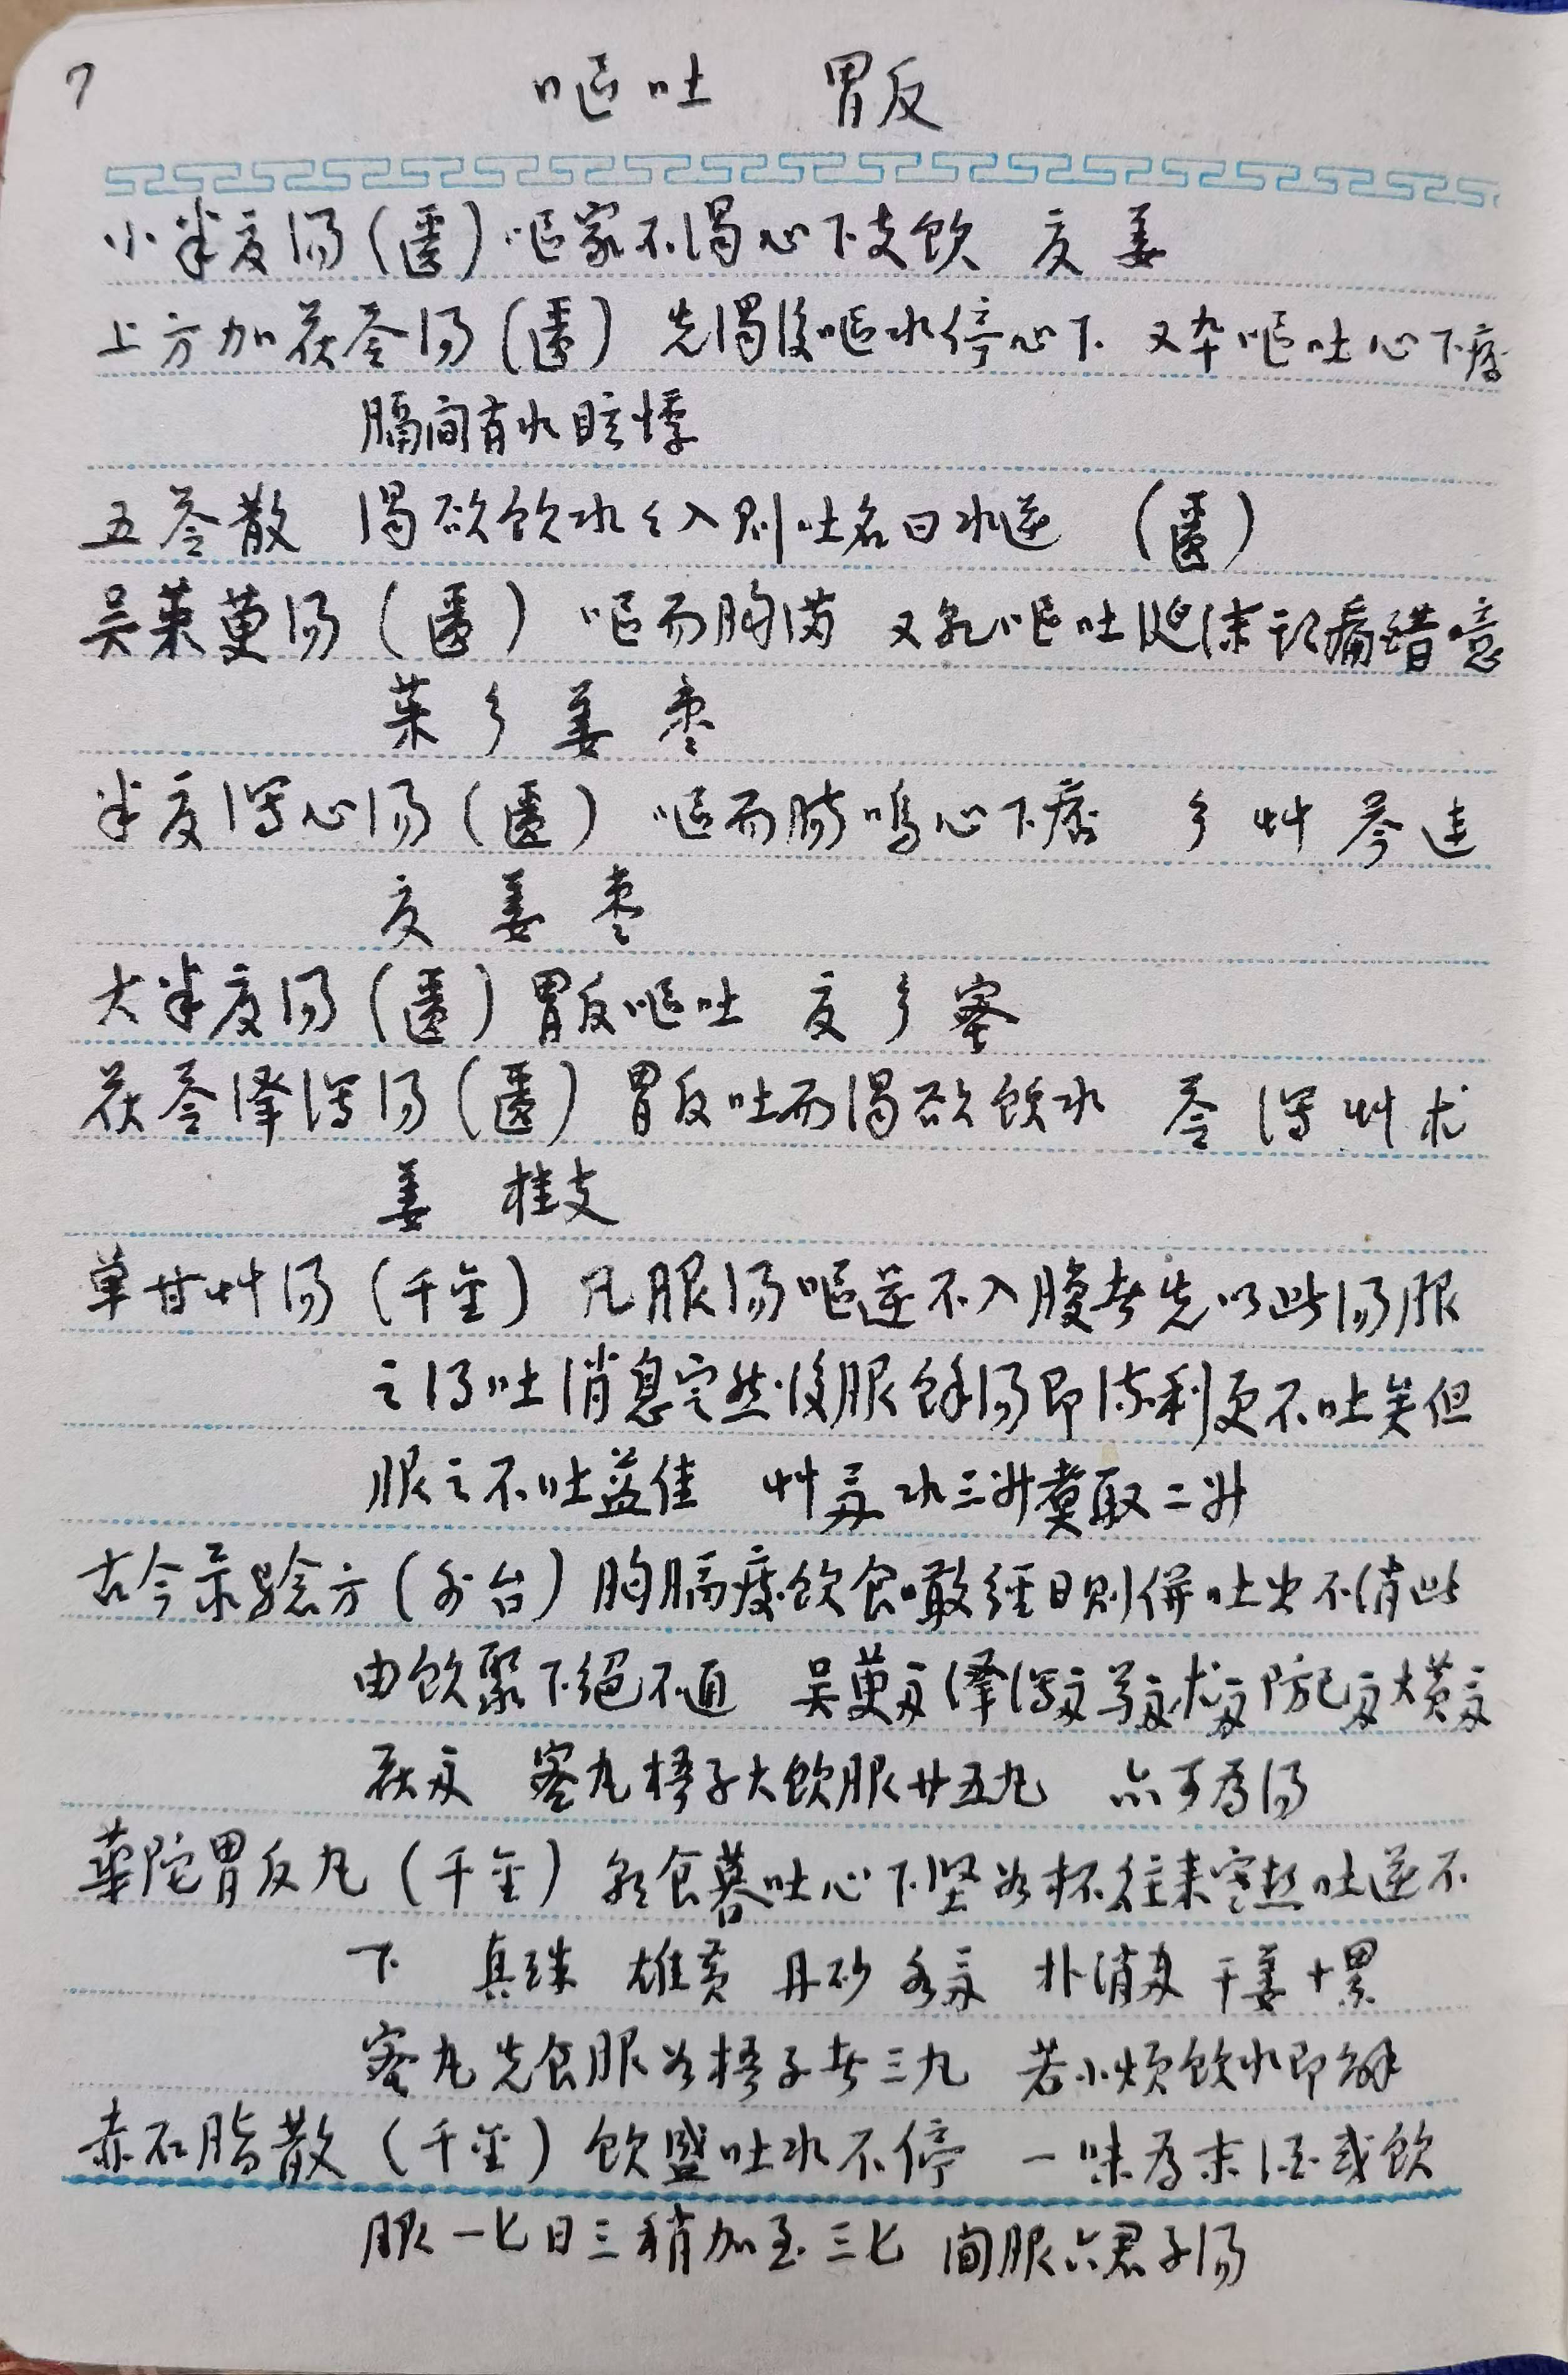 7
呕吐 胃反
小半夏汤(匮)呕家不渴心下支饮 夏 姜
上方加茯苓汤(匮) 先渴後呕水停心下 又卒呕吐心下痞
膈间有水眩悸
五苓散 渴欲饮水々入则吐名曰水逆 (匮)
吴茱萸汤(匮) 呕而胸满 又乾呕吐涎沫头痛
茱 参 姜 枣
半夏泻心汤(匮) 呕而肠鸣心下痞 参 艸 芩 连
夏 姜 枣
大半夏汤(匮)胃反呕吐 夏 参 蜜
茯苓泽泻汤(匮)胃反吐而渴欲饮水 苓 泻 艸 术
姜 桂支
单甘艸汤(千金) 凡服汤呕逆不入腹者先以此汤服
之得吐消息定然後服餘汤即流利更不吐矣但
服之不吐益佳 艸 水三升煮取二升
古今录验方(外台)胸膈痰饮食啖经日则併吐出不消此
由饮聚下绝不通 吴萸 泽泻 术 防己 大黄
茯 蜜丸梧子大饮服廿五丸 亦可为汤
华陀胃反丸(千金) 朝食暮吐心下坚如杯往来寒热吐逆不
下 真珠 雄黄 丹砂 各 朴消 干姜十累
蜜丸先食服如梧子者三丸 若小烦饮水即解
赤石脂散(千金)饮盛吐水不停 一味为末酒或饮
服一匕日三稍加至三匕 间服六君子汤